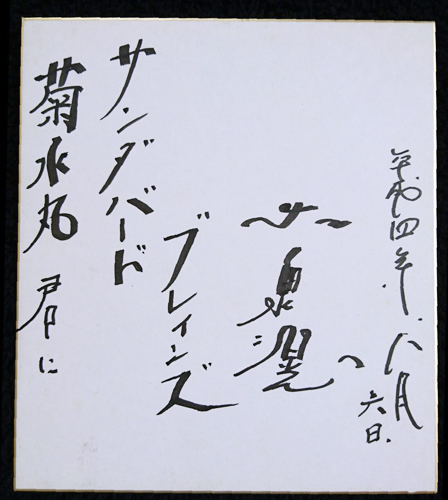 菊水丸君に
サンダバード
ブレインズ
大泉滉
平成四年.八月
六日.